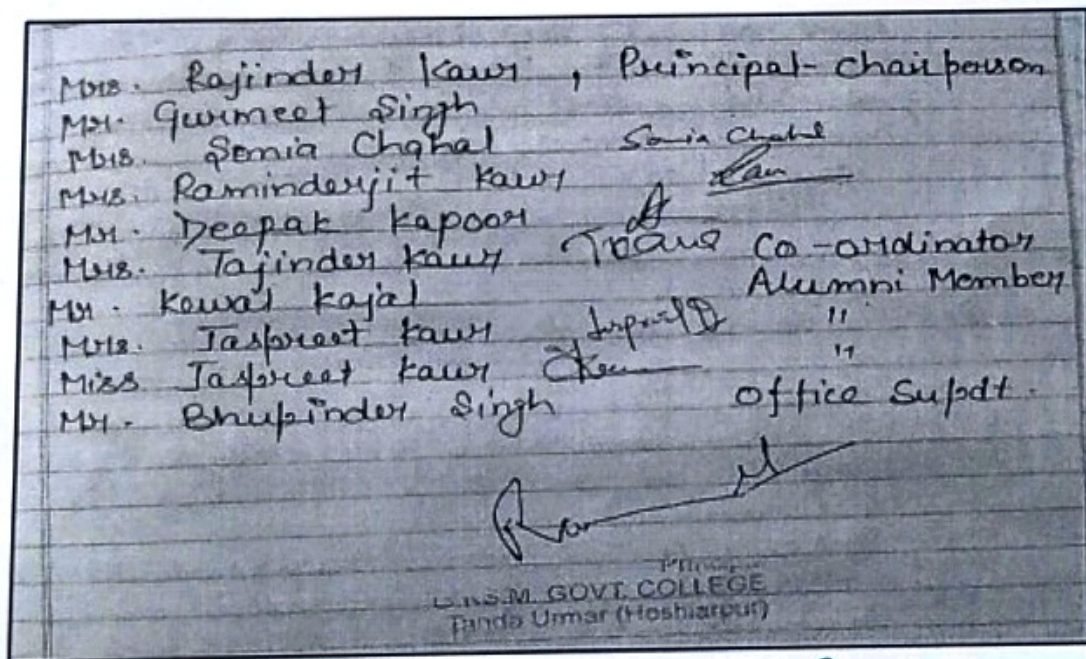 Mrs. Rajinder Kaur, Principal-Chairperson
Mr. Gurmeet Singh
Mrs. Sonia Chahal Sonia Chahal
Mrs. Raminderjit Kaur
Mr. Deepak Kapoor
Mrs. Tajinder Kaur Co-ordinator
Mr. Kewal Kajal Alumni Member
Mrs. Jaspreet Kaur "
Miss Jaspreet Kaur "
Mr. Bhupinder Singh Office Supdt.
Principal
GOVT. COLLEGE
Tanda Urmar (Hoshiarpur)